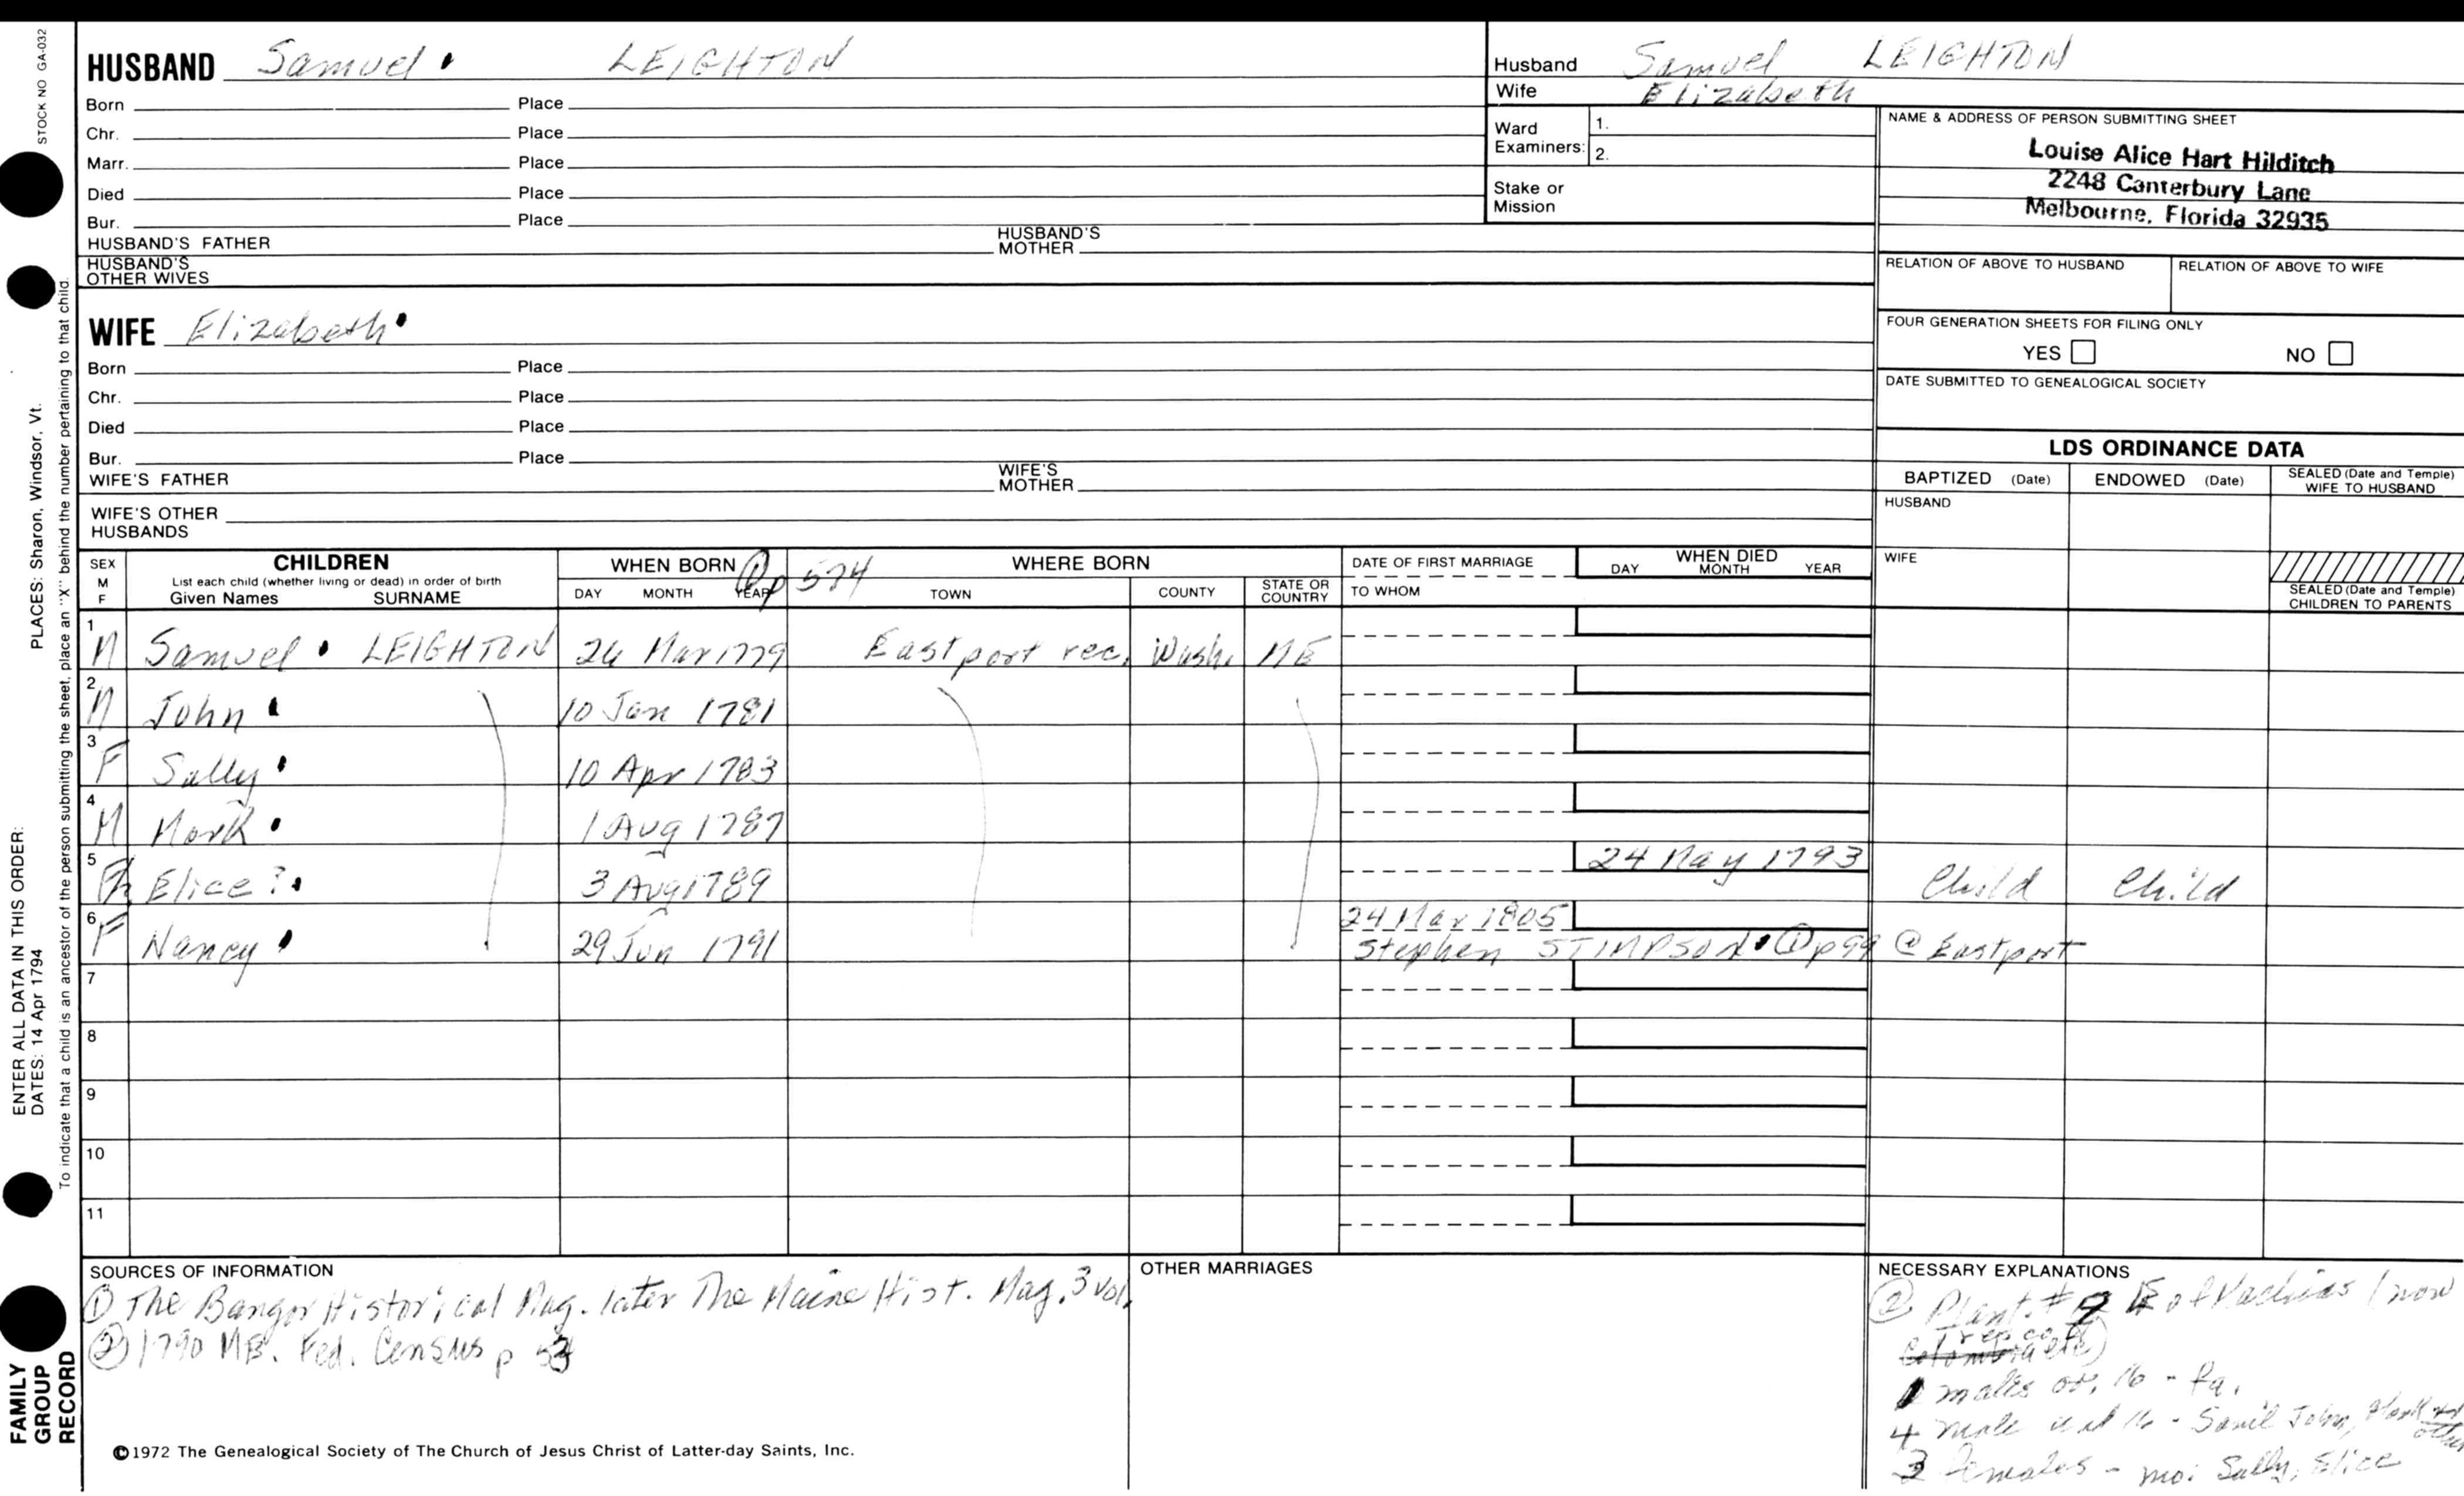 STOCK NO GA-032
HUSBAND Samuel LEIGHTON
Born Place
Chr. Place
Marr. Place
Died Place
Bur. Place
HUSBAND'S FATHER HUSBAND'S MOTHER
HUSBAND'S OTHER WIVES
WIFE Elizabeth
Born Place
Chr. Place
Died Place
Bur. Place
WIFE'S FATHER WIFE'S MOTHER
WIFE'S OTHER HUSBANDS
Husband Samuel LEIGHTON
Wife Elizabeth
Ward Examiners: 1.
2.
Stake or Mission
NAME & ADDRESS OF PERSON SUBMITTING SHEET
Louise Alice Hart Hilditch
2248 Canterbury Lane
Melbourne, Florida 32935
RELATION OF ABOVE TO HUSBAND RELATION OF ABOVE TO WIFE
FOUR GENERATION SHEETS FOR FILING ONLY
YES NO
DATE SUBMITTED TO GENEALOGICAL SOCIETY
LDS ORDINANCE DATA
BAPTIZED (Date) ENDOWED (Date) SEALED (Date and Temple) WIFE TO HUSBAND
HUSBAND
WIFE
SEALED (Date and Temple) CHILDREN TO PARENTS
SEX M F CHILDREN WHEN BORN ① p 574 WHERE BORN DATE OF FIRST MARRIAGE WHEN DIED
List each child (whether living or dead) in order of birth
Given Names SURNAME DAY MONTH YEAR TOWN COUNTY STATE OR COUNTRY TO WHOM DAY MONTH YEAR
1 M Samuel LEIGHTON 24 Mar 1779 Eastport rec. Wash. ME
2 M John 10 Jan 1781
3 F Sally 10 Apr 1783
4 M Mark 1 Aug 1787
5 Elice? 3 Aug 1789 24 May 1793 Child Child
6 F Nancy 29 Jun 1791 24 Mar 1805
Stephen STIMPSON ① p 99 @ Eastport
7
8
9
10
11
SOURCES OF INFORMATION
① The Bangor Historical Mag. later The Maine Hist. Mag. 3 vol.
② 1790 ME. Fed. Census p 53
OTHER MARRIAGES
NECESSARY EXPLANATIONS
② Plant. # 9 E of Machias (now
Trescott)
1 males ov. 16 - fa.
4 male und 16 - Saml John, Mark and other
3 Females - mo: Sally, Elice
PLACES: Sharon, Windsor, Vt.
To indicate that a child is an ancestor of the person submitting the sheet, place an "X" behind the number pertaining to that child.
ENTER ALL DATA IN THIS ORDER:
DATES: 14 Apr 1794
FAMILY GROUP RECORD
©1972 The Genealogical Society of The Church of Jesus Christ of Latter-day Saints, Inc.